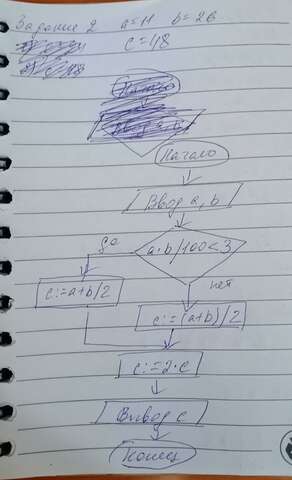 Задание 2 a=11 b=26
c=48
Начало
Ввод a, b
да a·b/100<3
нет
c:=a+b/2
c:=(a+b)/2
c:=2·c
Вывод c
Конец